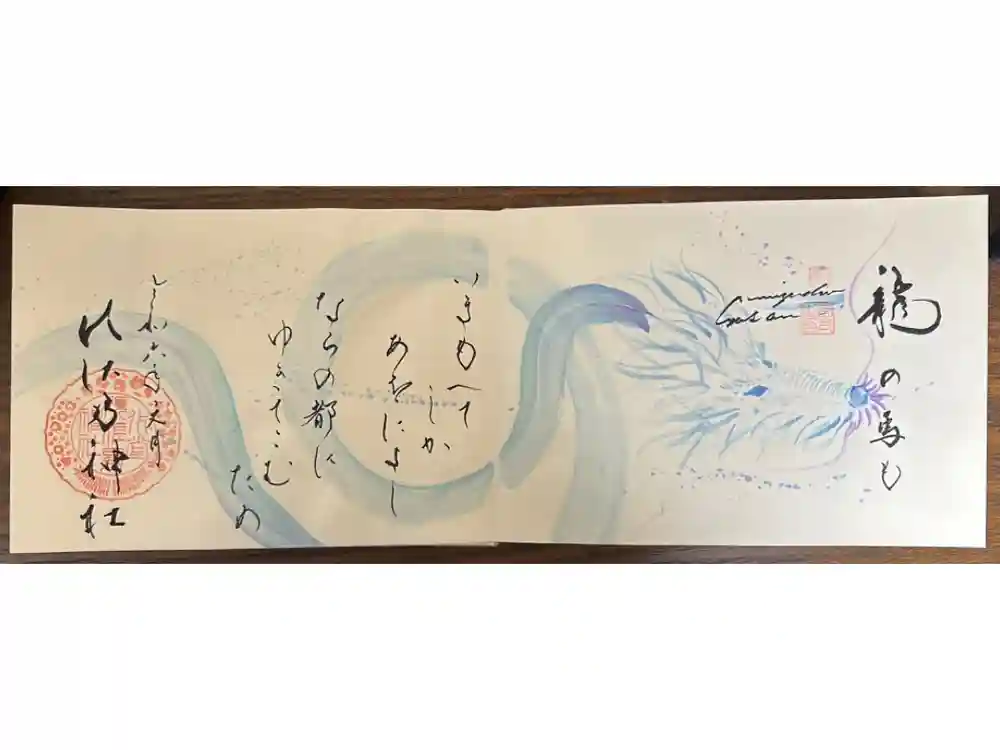 龍
の馬も
いまもえて
しか
あをによし
ならの都に
ゆきてこむ
ため
令和六年元月
神社